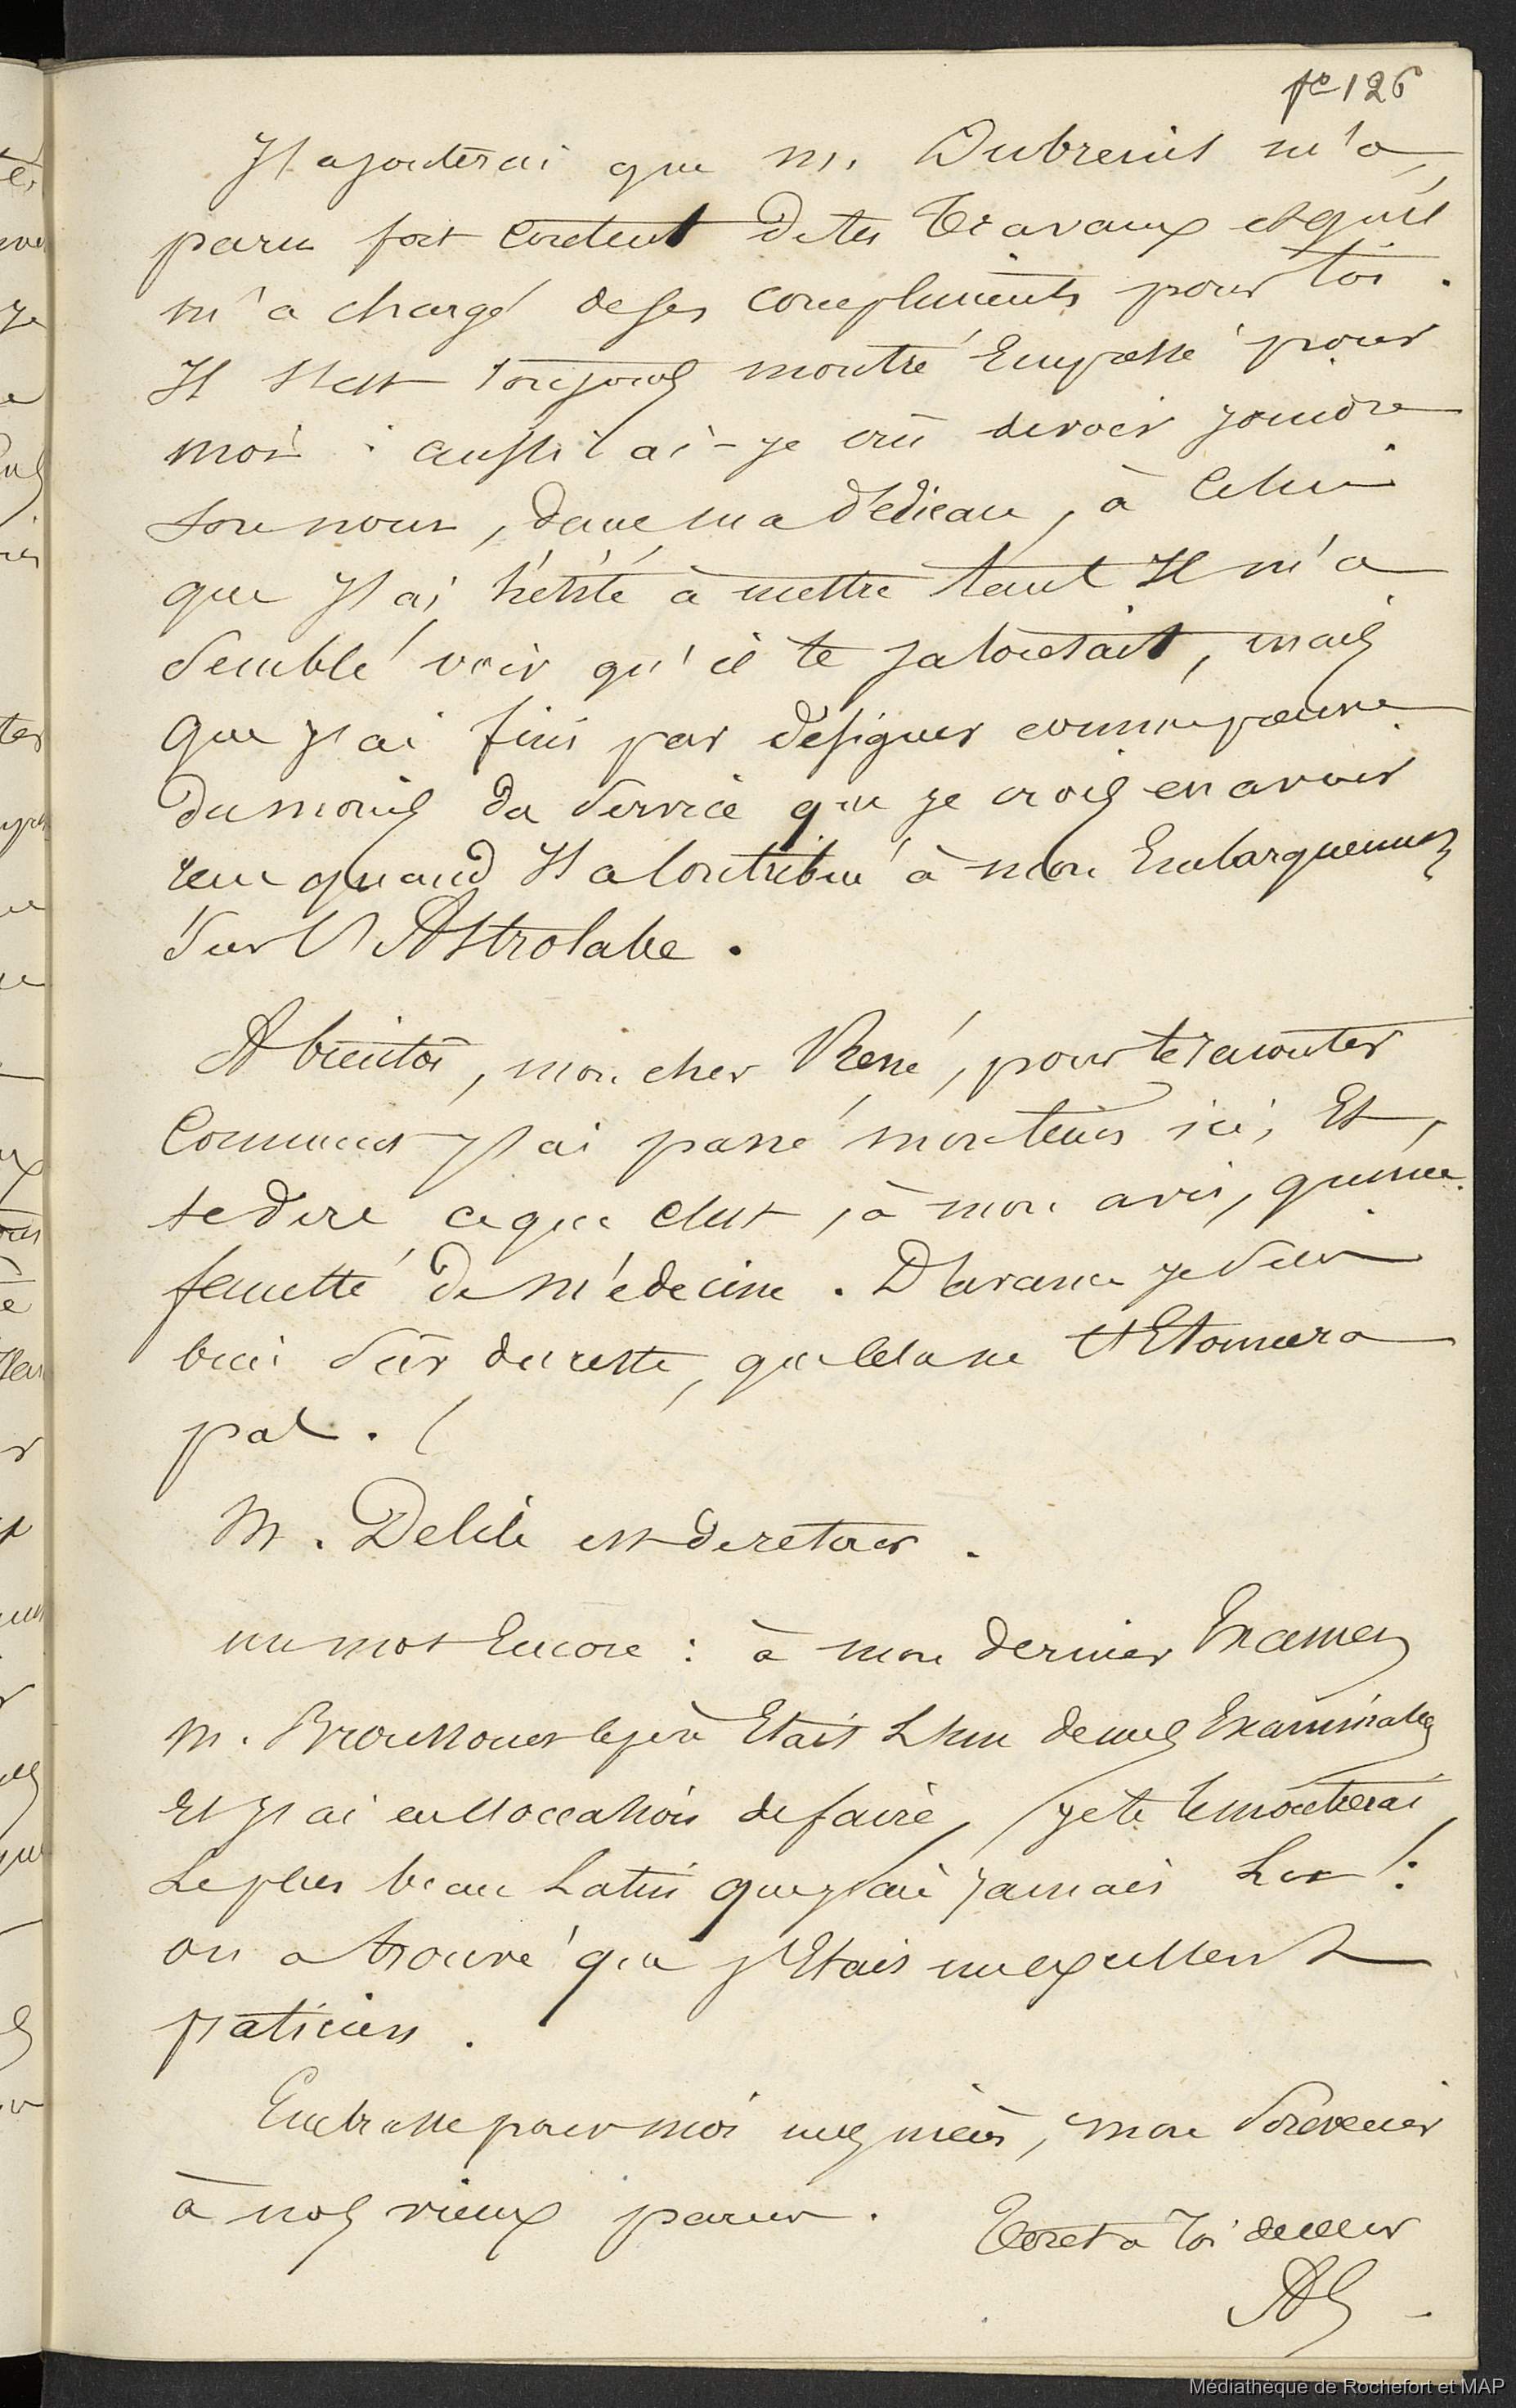 fo 126
J'ajouterai que M. Dubreuil m'a
paru fort content de tes Travaux et qu'il
m'a chargé de ses compliments pour toi.
Il s'est toujours montré Empressé pour
moi : aussi ai-je crû devoir joindre
son nom, dans ma dédicace, à Celui
que j'ai hésité à mettre tant Il m'a
semblé voir qu'il te jalousait, mais
que j'ai fini par désigner comme preuve
du moins du service que je crois en avoir
reçu quand Il a Contribué à mon Embarquement
sur l'Astrolabe.
A bientôt, mon cher René, pour te raconter
Comment j'ai passé mon tems ici, Et,
te dire ce que c'est, à mon avis, qu'une
faculté de Médecine. D'avance je suis
bien sûr du reste, que cela ne t'Etonnera
pas.
M. Delile est de retour.
un mot Encore : à mon dernier Examen
M. Broussonet le père Etait L'un de mes Examinateurs
Et j'ai eu l'occasion de faire, je te le montrerai,
Le plus beau Latin que j'aie jamais Lu !:
on a trouvé que j'Etais un excellent
praticien.
Embrasse pour moi mes nièces, mon souvenir
à nos vieux parens.
Tout à Toi de cœur